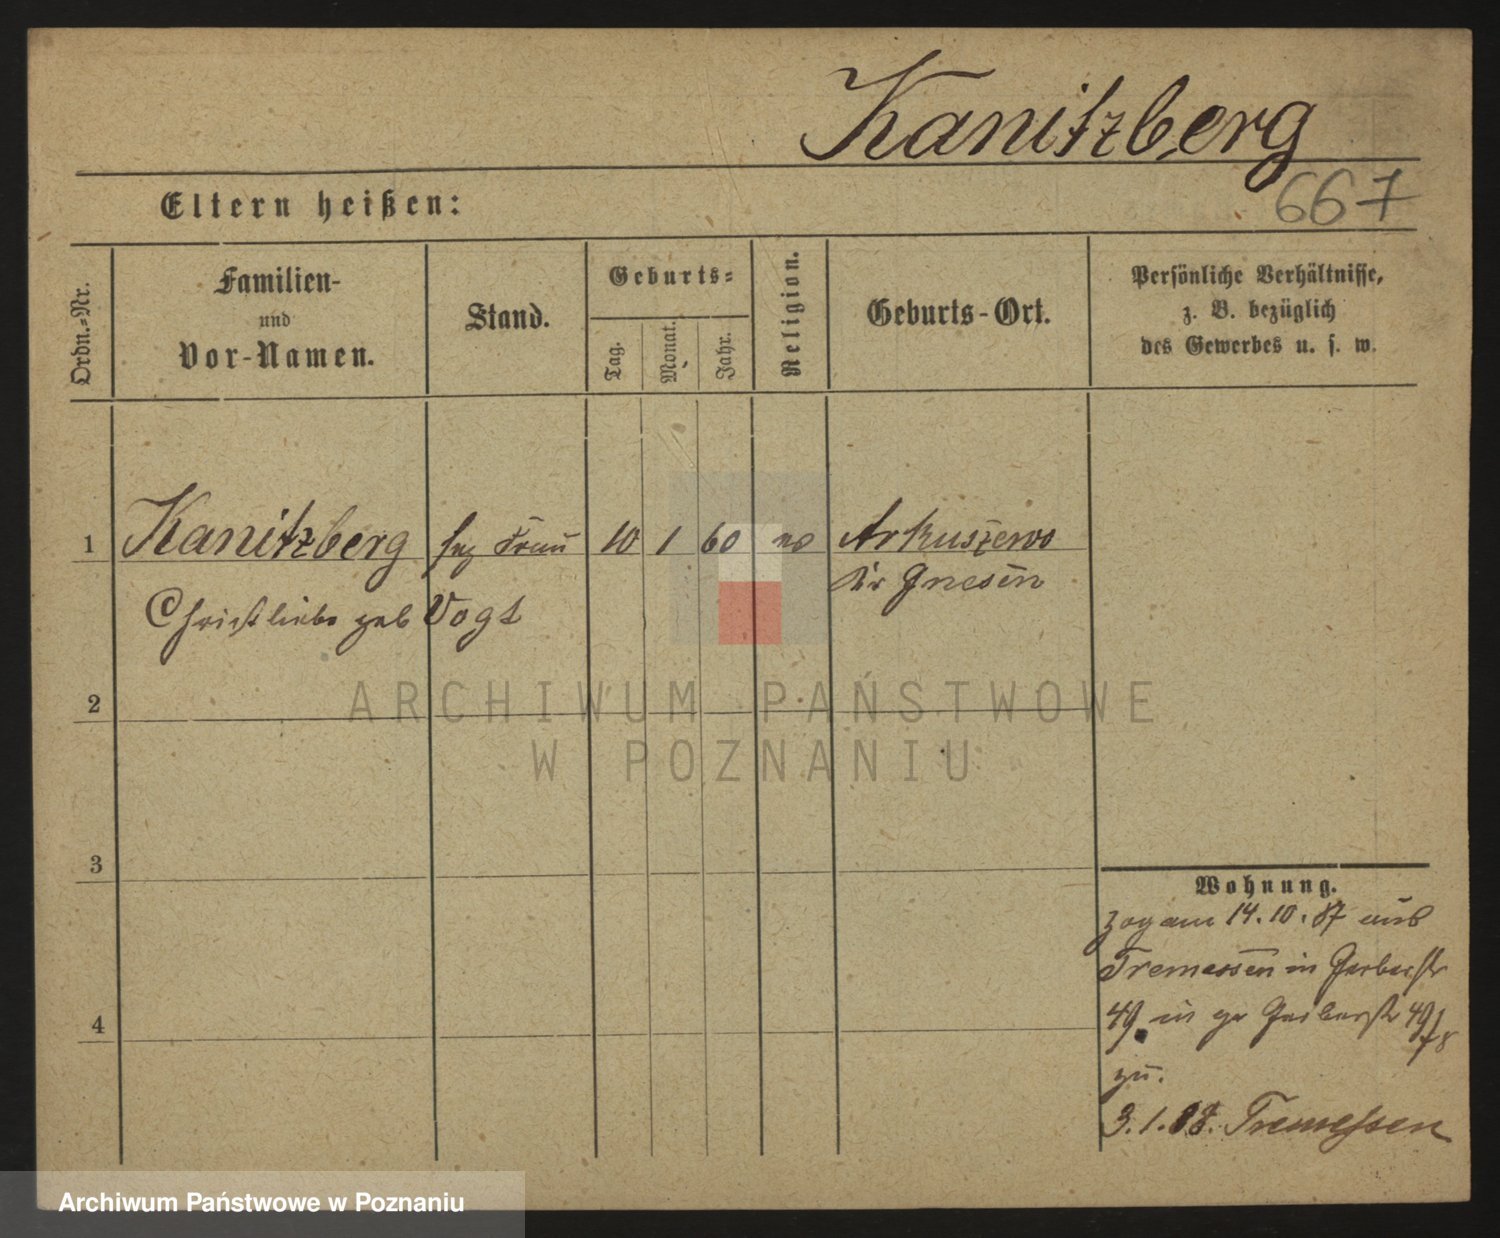 Kanitzberg
667
Eltern heißen:
Ordn.-Nr.
Familien-
und
Vor-Namen.
Stand.
Geburts-
Tag.
Monat.
Jahr.
Religion.
Geburts-Ort.
Persönliche Verhältnisse,
z. B. bezüglich
des Gewerbes u. s. w.
1 Kanitzberg Frau 10 1 60 Arkuszewo
Kr Gnesen
Christliebe geb Vogt
2
3
4
Wohnung.
zog am 14.10.87 aus
Tremessen in Gerberstr
49 in gr Gerberstr 49
zu.
3.1.88. Tremessen
ARCHIWUM PAŃSTWOWE
W POZNANIU
Archiwum Państwowe w Poznaniu